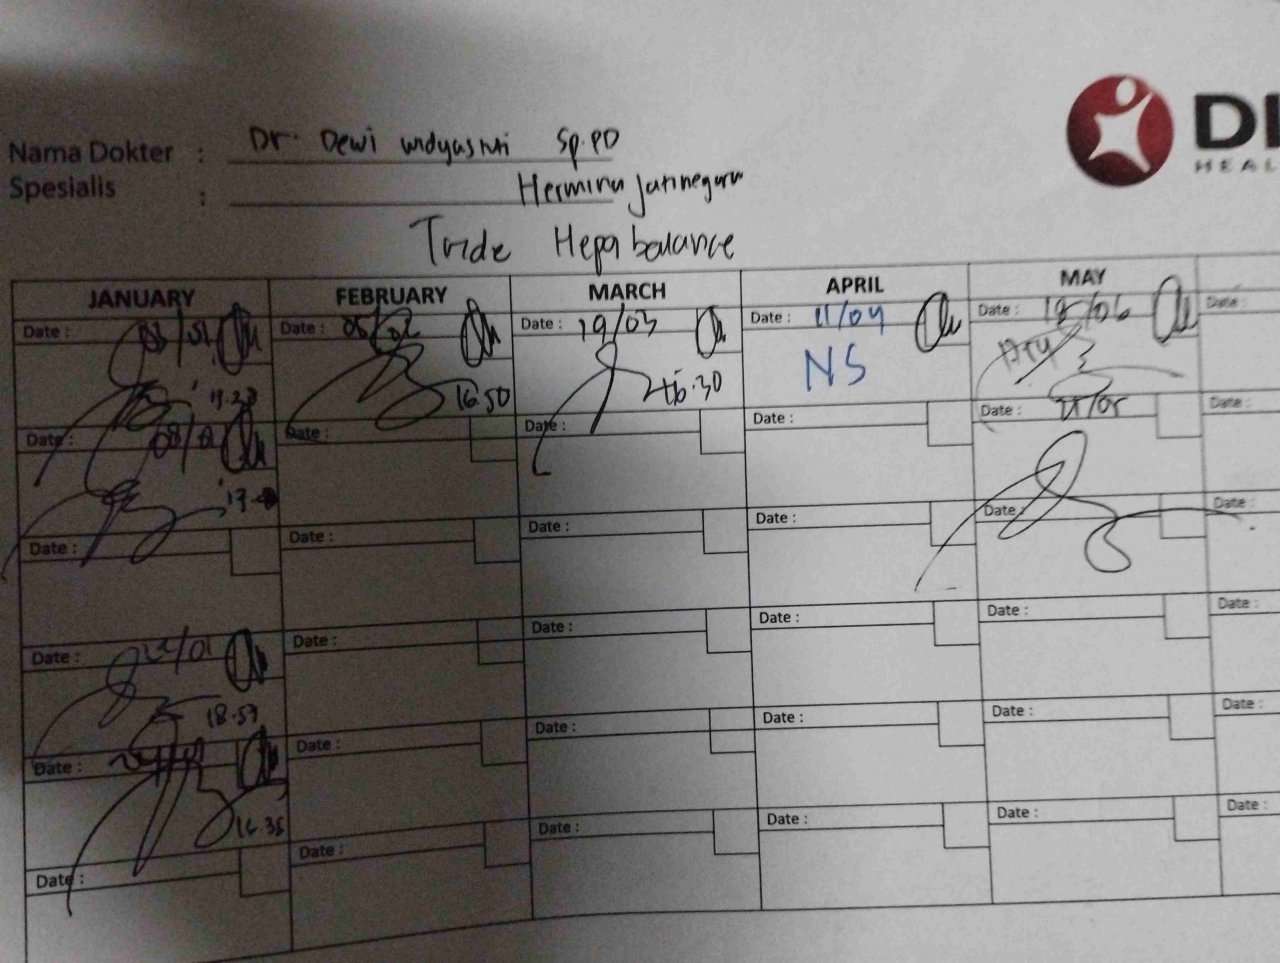 DI
HEAL
Nama Dokter : Dr. Dewi Widyastuti Sp.PD
Spesialis : Hermina Jatinegara
Tride Hepabalance
JANUARY FEBRUARY MARCH APRIL MAY
Date : 03/01 Date : 05/02 Date : 19/03 Date : 11/04 Date : Date :
16.50 16.30 NS
Date : Date : Date : Date : Date : Date :
Date : Date : Date : Date : Date : Date :
Date : 22/01 Date : Date : Date : Date : Date :
18.57
Date : Date : Date : Date : Date : Date :
16.35
Date : Date : Date : Date : Date : Date :